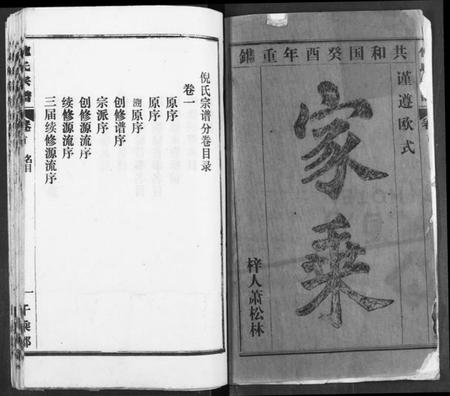 共和国癸酉年重鐫
谨遵欧式
家乘
梓人萧松林
倪氏宗谱分卷目录
卷一
原序
原序
溯原序
创修谱序
宗派序
创修源流序
续修源流序
三届续修源流序
倪氏宗谱
卷首
名目
一
千乘郡